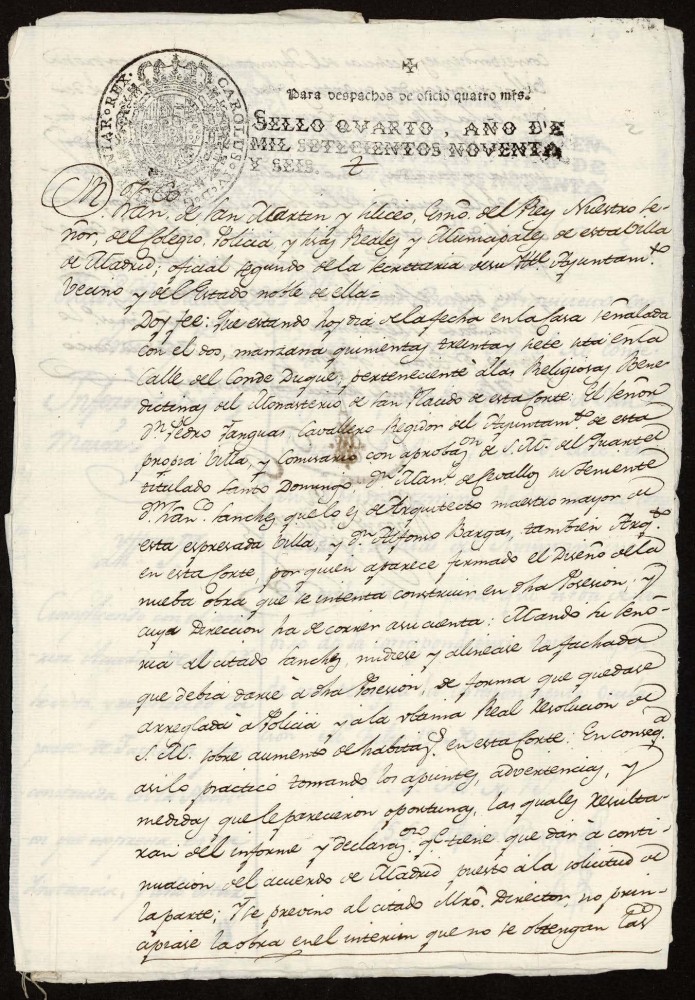 CAROLUS IV D G HISPANIAR REX
Para despachos de oficio quatro mrs.
SELLO QVARTO, AÑO DE
MIL SETECIENTOS NOVENTA
Y SEIS.
Fran.co de San Martin y Eliceo, Essno. del Rey Nuestro Se-
ñor, del Colegio, Policia, y Rs. Reales y Municipales de esta Villa
de Madrid; oficial segundo de la secretaria de su Ayuntam.to
Vecino y del Estado noble de ella
Doy fee: Que estando hoy dia de la fecha en la Casa señalada
con el dos, manzana quinientas treinta y siete sita en la
Calle del Conde Duque, y perteneciente à las Religiosas Bene-
dictinas del Monasterio de San Placido de esta Corte: El señor
Dn. Pedro Fanguas Cavallero Regidor del Ayuntam.to de esta
propia Villa, y Comisario con aprobaz.on de S.M. del Quartel
titulado Santo Domingo, Dn. Man.l de Cevallos su Teniente
Dn. Fran.co Sanchez, que lo es de Arquitecto maestro mayor de
esta espresada Villa, y Dn. Alfonso Bargas, tambien Arq.to
en esta Corte, por quien aparece firmado el Diseño de la
nueba obra que se intenta construir en dha Posesion, y
cuya Direccion ha de correr a su cuenta: Mandó su Seño-
ria al citado Sanchez, midiese y alinease la fachada
que debia darse à dha Posesion, de forma que quedase
arreglada à Policia, y a la vltima Real Resolucion de
S.M. sobre aumento de habitaz.s en esta Corte: En conseq.a
asi lo practicó tomando los apuntes, advertencias, y
medidas que le parecieron oportunas, las quales resulta-
ran del informe y declaraz.on q.e tiene que dar à conti-
nuacion del acuerdo de Madrid puesto à la solicitud de
la parte; Y se previno al citado Mro. Director, no prin-
cipiase la obra en el interin que no se obtengan las